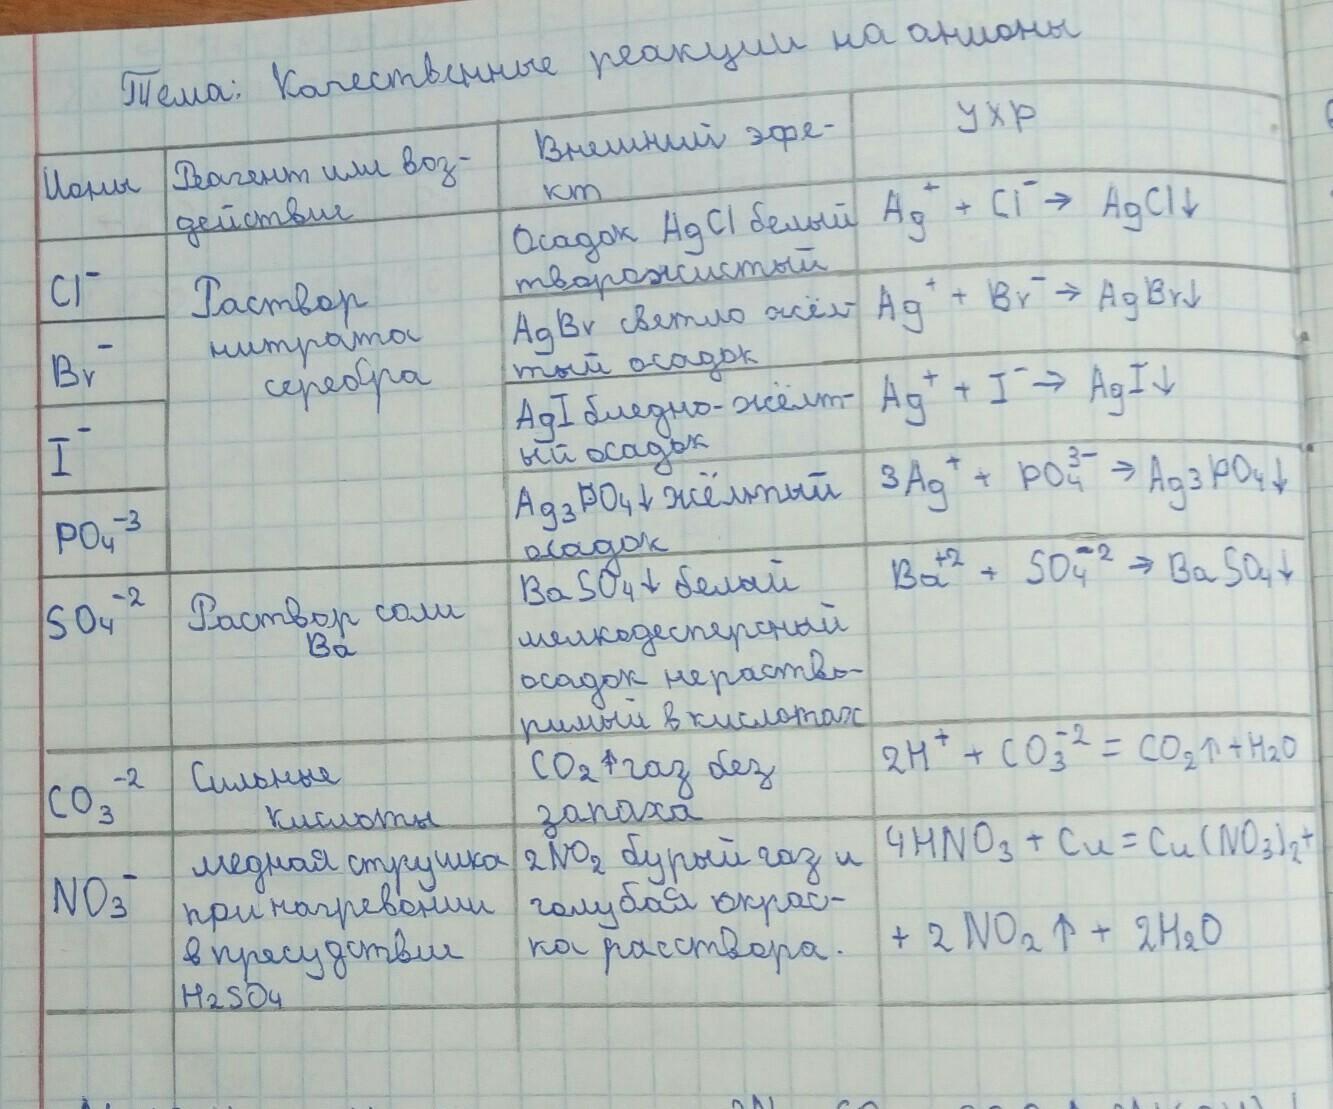 Тема: Качественные реакции на анионы
Ионы
Реагент или воз-
действие
Внешний эфе-
кт
УХР
Cl⁻
Раствор
нитрата
серебра
Осадок AgCl белый
творожистый
Ag⁺ + Cl⁻ → AgCl↓
Br⁻
AgBr светло жёл-
тый осадок
Ag⁺ + Br⁻ → AgBr↓
I⁻
AgI бледно-жёлт-
ый осадок
Ag⁺ + I⁻ → AgI↓
PO₄⁻³
Ag₃PO₄↓ жёлтый
осадок
3Ag⁺ + PO₄³⁻ → Ag₃PO₄↓
SO₄⁻²
Раствор соли
Ba
BaSO₄↓ белый
мелкодесперсный
осадок нераство-
римый в кислотах
Ba⁺² + SO₄⁻² → BaSO₄↓
CO₃⁻²
Сильные
кислоты
CO₂↑ газ без
запаха
2H⁺ + CO₃⁻² = CO₂↑ + H₂O
NO₃⁻
медная стружка
при нагревании
в присудствии
H₂SO₄
2NO₂ бурый газ и
голубая окрас-
ка расствора.
4HNO₃ + Cu = Cu(NO₃)₂ +
+ 2NO₂↑ + 2H₂O